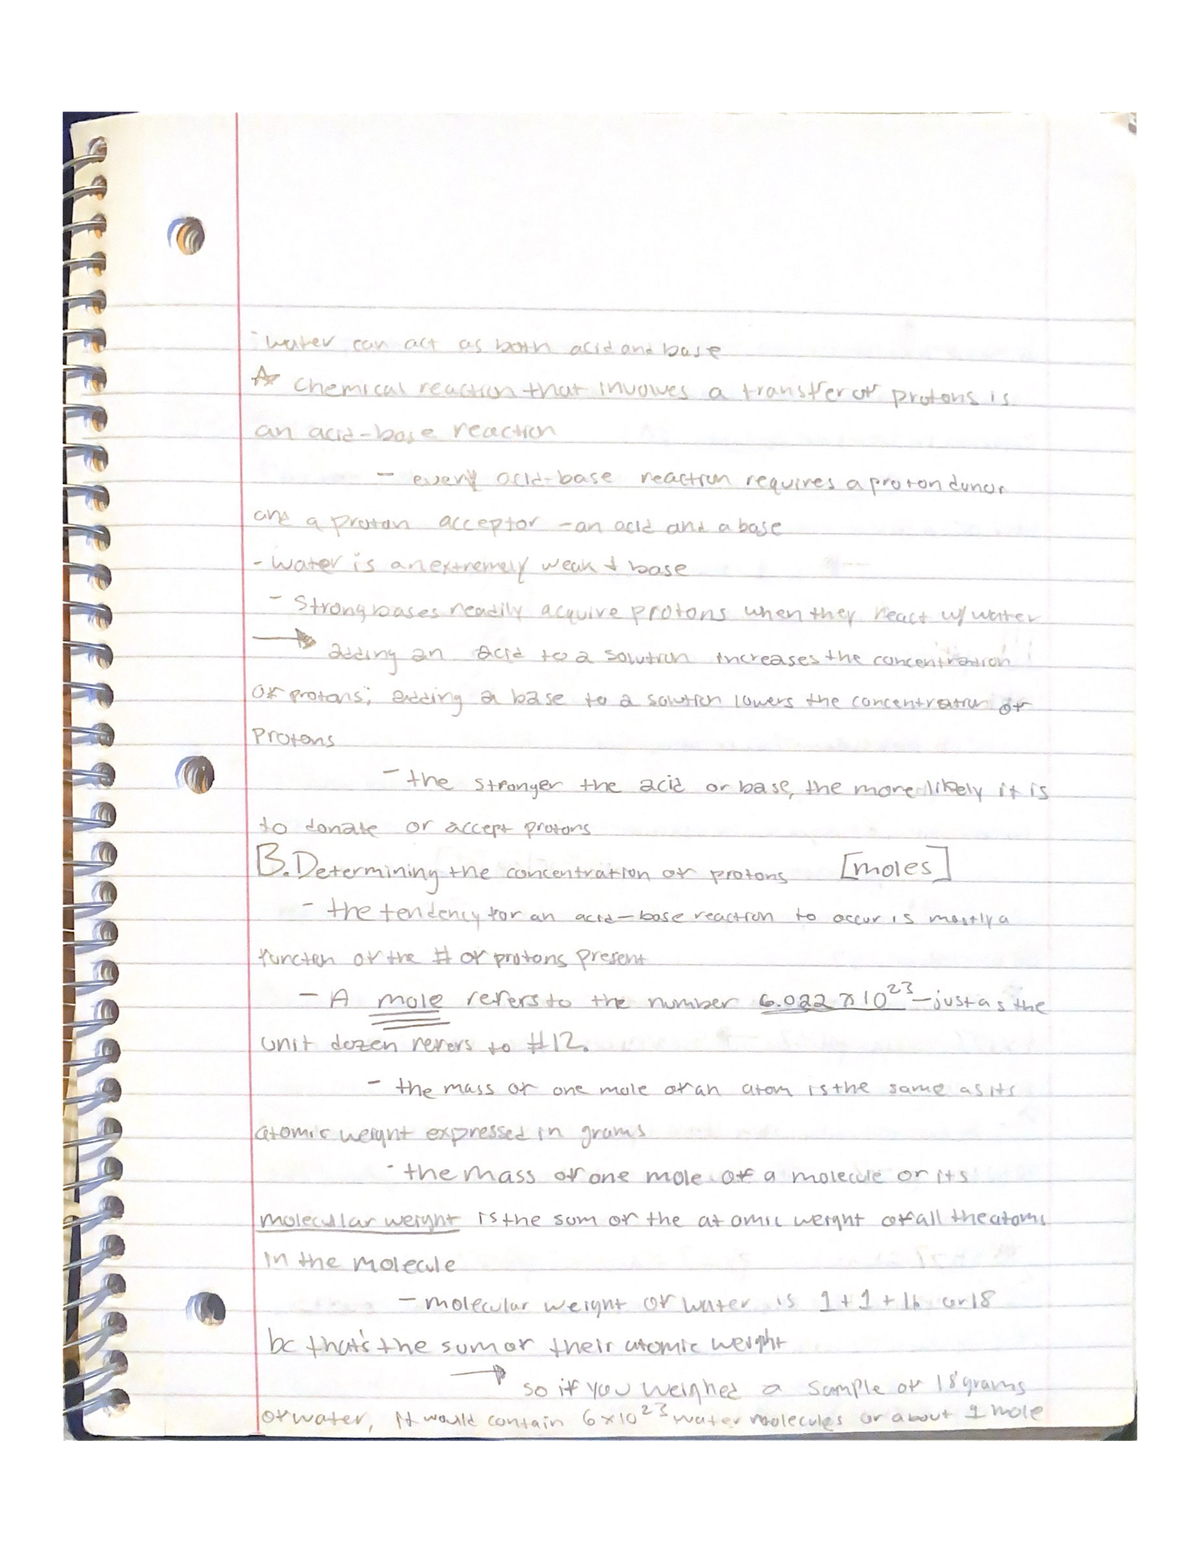 - water can act as both acid and base
☆ Chemical reaction that involves a transfer of protons is
an acid-base reaction
- every acid-base reaction requires a proton donor
and a proton acceptor - an acid and a base
- Water is an extremely weak + base
- Strong bases readily acquire protons when they react w/ water
→ adding an acid to a solution increases the concentration
of protons; adding a base to a solution lowers the concentration of
Protons
- the stronger the acid or base, the more likely it is
to donate or accept protons
B. Determining the concentration of protons [moles]
- the tendency for an acid-base reaction to occur is mostly a
function of the # of protons present
- A mole refers to the number 6.022 x 10^23 - just as the
unit dozen refers to #12.
- the mass of one mole of an atom is the same as its
atomic weight expressed in grams
- the mass of one mole of a molecule or its
molecular weight is the sum of the atomic weight of all the atoms
in the molecule
- molecular weight of water is 1 + 1 + 16 or 18
bc that's the sum of their atomic weight
→ so if you weighed a sample of 18 grams
of water, it would contain 6 x 10^23 water molecules or about 1 mole